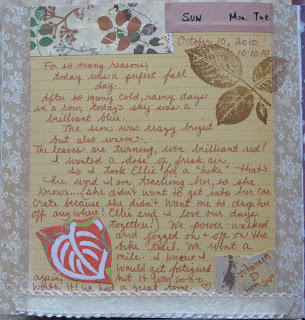 SUN Mon. Tue.
October 10, 2010
10-10-10
For so many reasons,
today was a perfect fall
day.
After so many cold, rainy days
in a row, today's sky was a
brilliant blue.
The sun was crazy bright
but also warm.
The leaves are turning, even brilliant red!
I wanted a dose of fresh air
so I took Ellie for a "hike" - that's
the word I am teaching her, so she
knows. (She didn't want to get into her car
crate because she didn't want me to drop her
off anywhere! Ellie and I love our days
together!) We power walked
and jogged on & off on the
bike trail. We went a
mile. I knew I
would get fatigued
again but it was so-o-o
worth it! We had a great time
Vitamin
D
from Sun